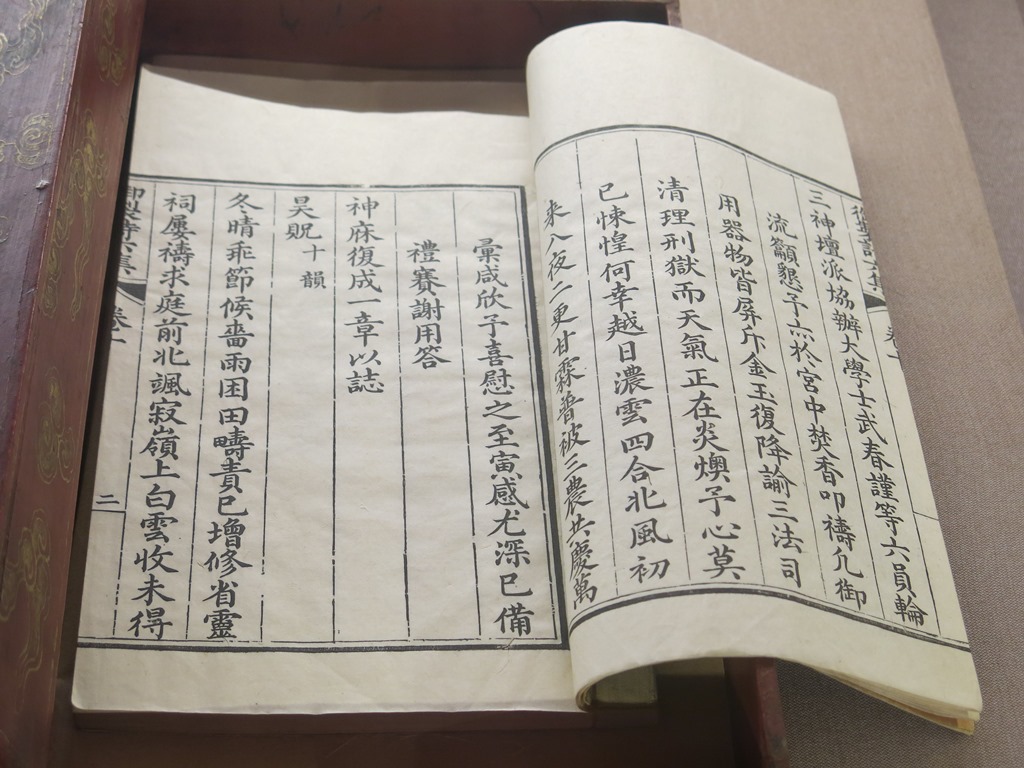 三神壇派協辦大學士武春謹等六員輪
流籲懇予亦於宮中焚香叩禱凡御
用器物皆屏斥金玉復降諭三法司
清理刑獄而天氣正在炎燠予心莫
已悚惶何幸越日濃雲四合北風初
来八夜二更甘霖普被三農共慶萬
彙咸欣予喜慰之至寅感尤深已備
禮賽謝用答
神庥復成一章以誌
昊貺十韻
冬晴乖節候嗇雨困田疇責已增修省靈
祠屢禱求庭前北颯寂嶺上白雲收未得
二